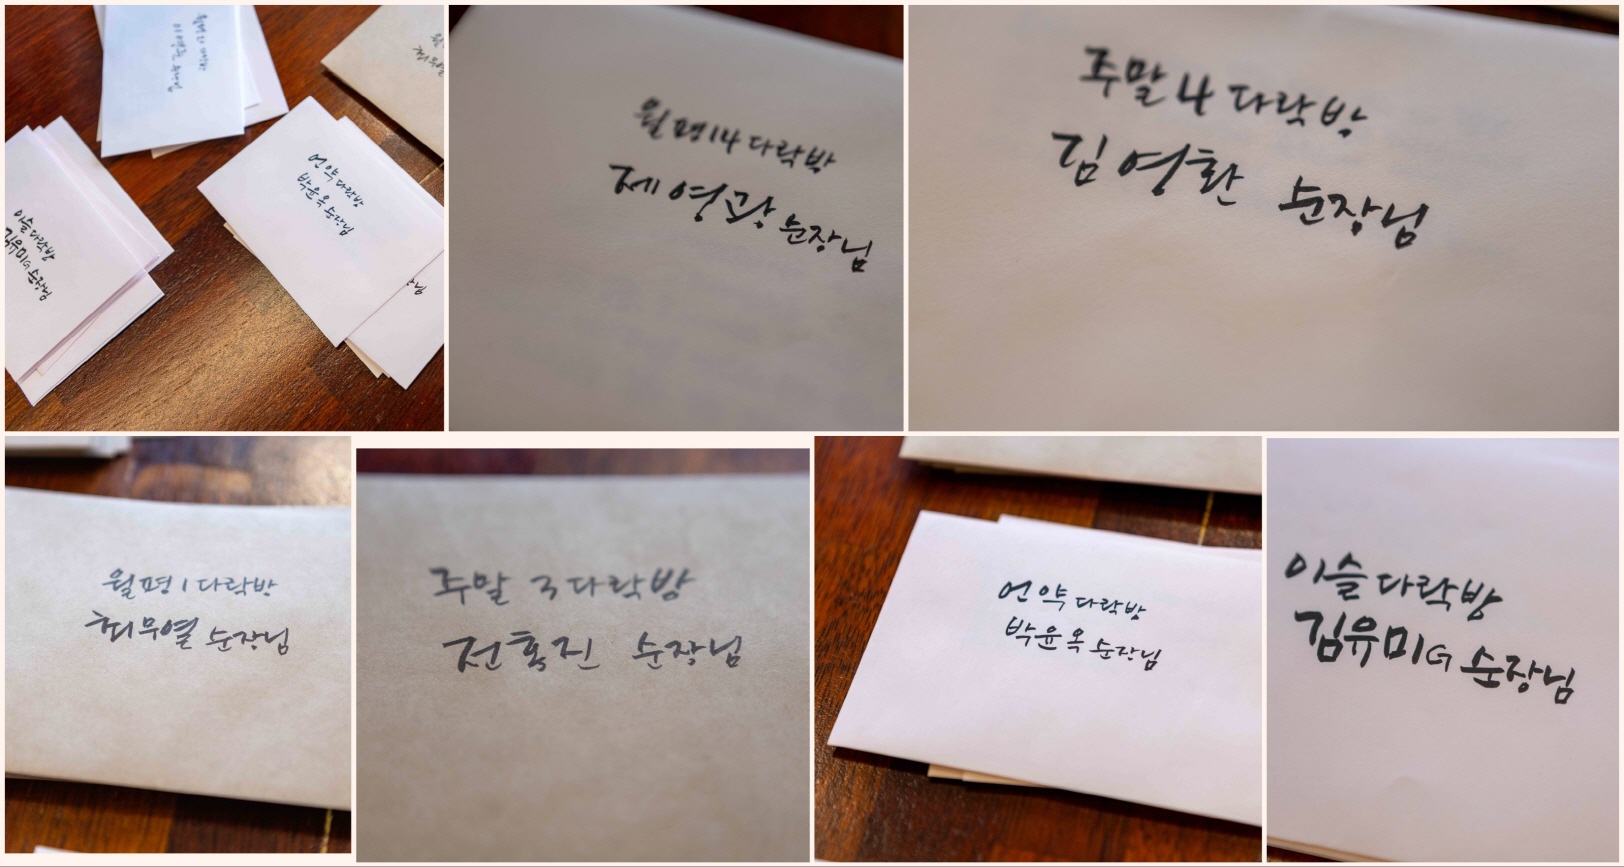 월평20 다락방
순장님
언약 다락방
박윤옥 순장님
이슬 다락방
김유미G 순장님
월평14 다락방
제영광 순장님
주말 4 다락방
김영환 순장님
월평 1 다락방
최무열 순장님
주말 3 다락방
전혹진 순장님
언약 다락방
박윤옥 순장님
이슬 다락방
김유미G 순장님